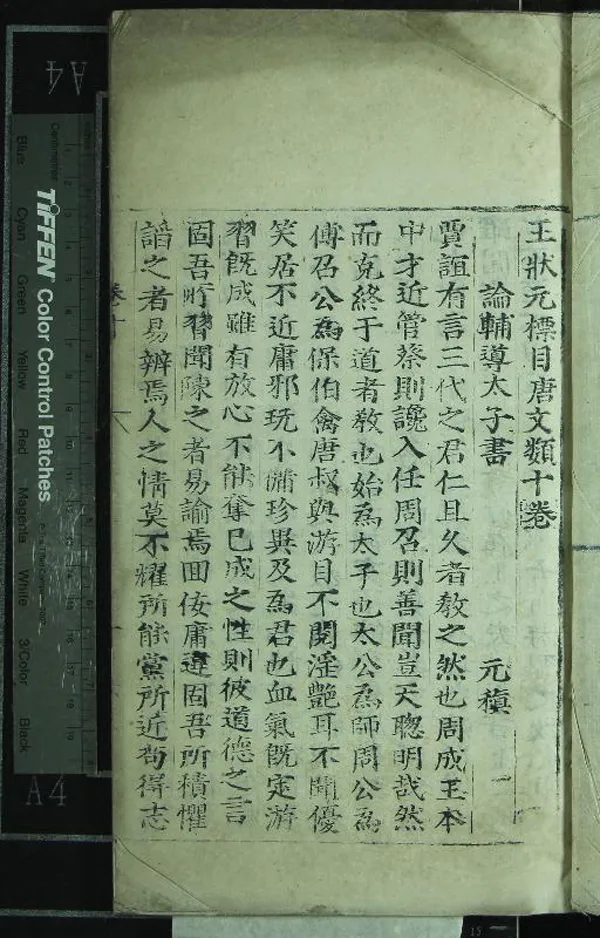 王狀元標目唐文類十卷
論輔導太子書 元稹
賈誼有言三代之君仁且久者教之然也周成王本
中才近管蔡則讒入任周召則善聞豈天聰明哉然
而克終于道者教也始為太子也太公為師周公為
傅召公為保伯禽唐叔與游目不閱淫艷耳不聞優
笑居不近庸邪玩不備珍異及為君也血氣既定游
習既成雖有放心不能奪已成之性則彼道德之言
固吾所習聞陳之者易諭焉囬佞庸違固吾所積懼
謟之者易辨焉人之情莫不耀所能黨所近苟得志
卷十
A4
TIFFEN Color Control Patches
Centimetres
Blue
Cyan
Green
Yellow
Red
Magenta
White
3/Color
Black
A4
15